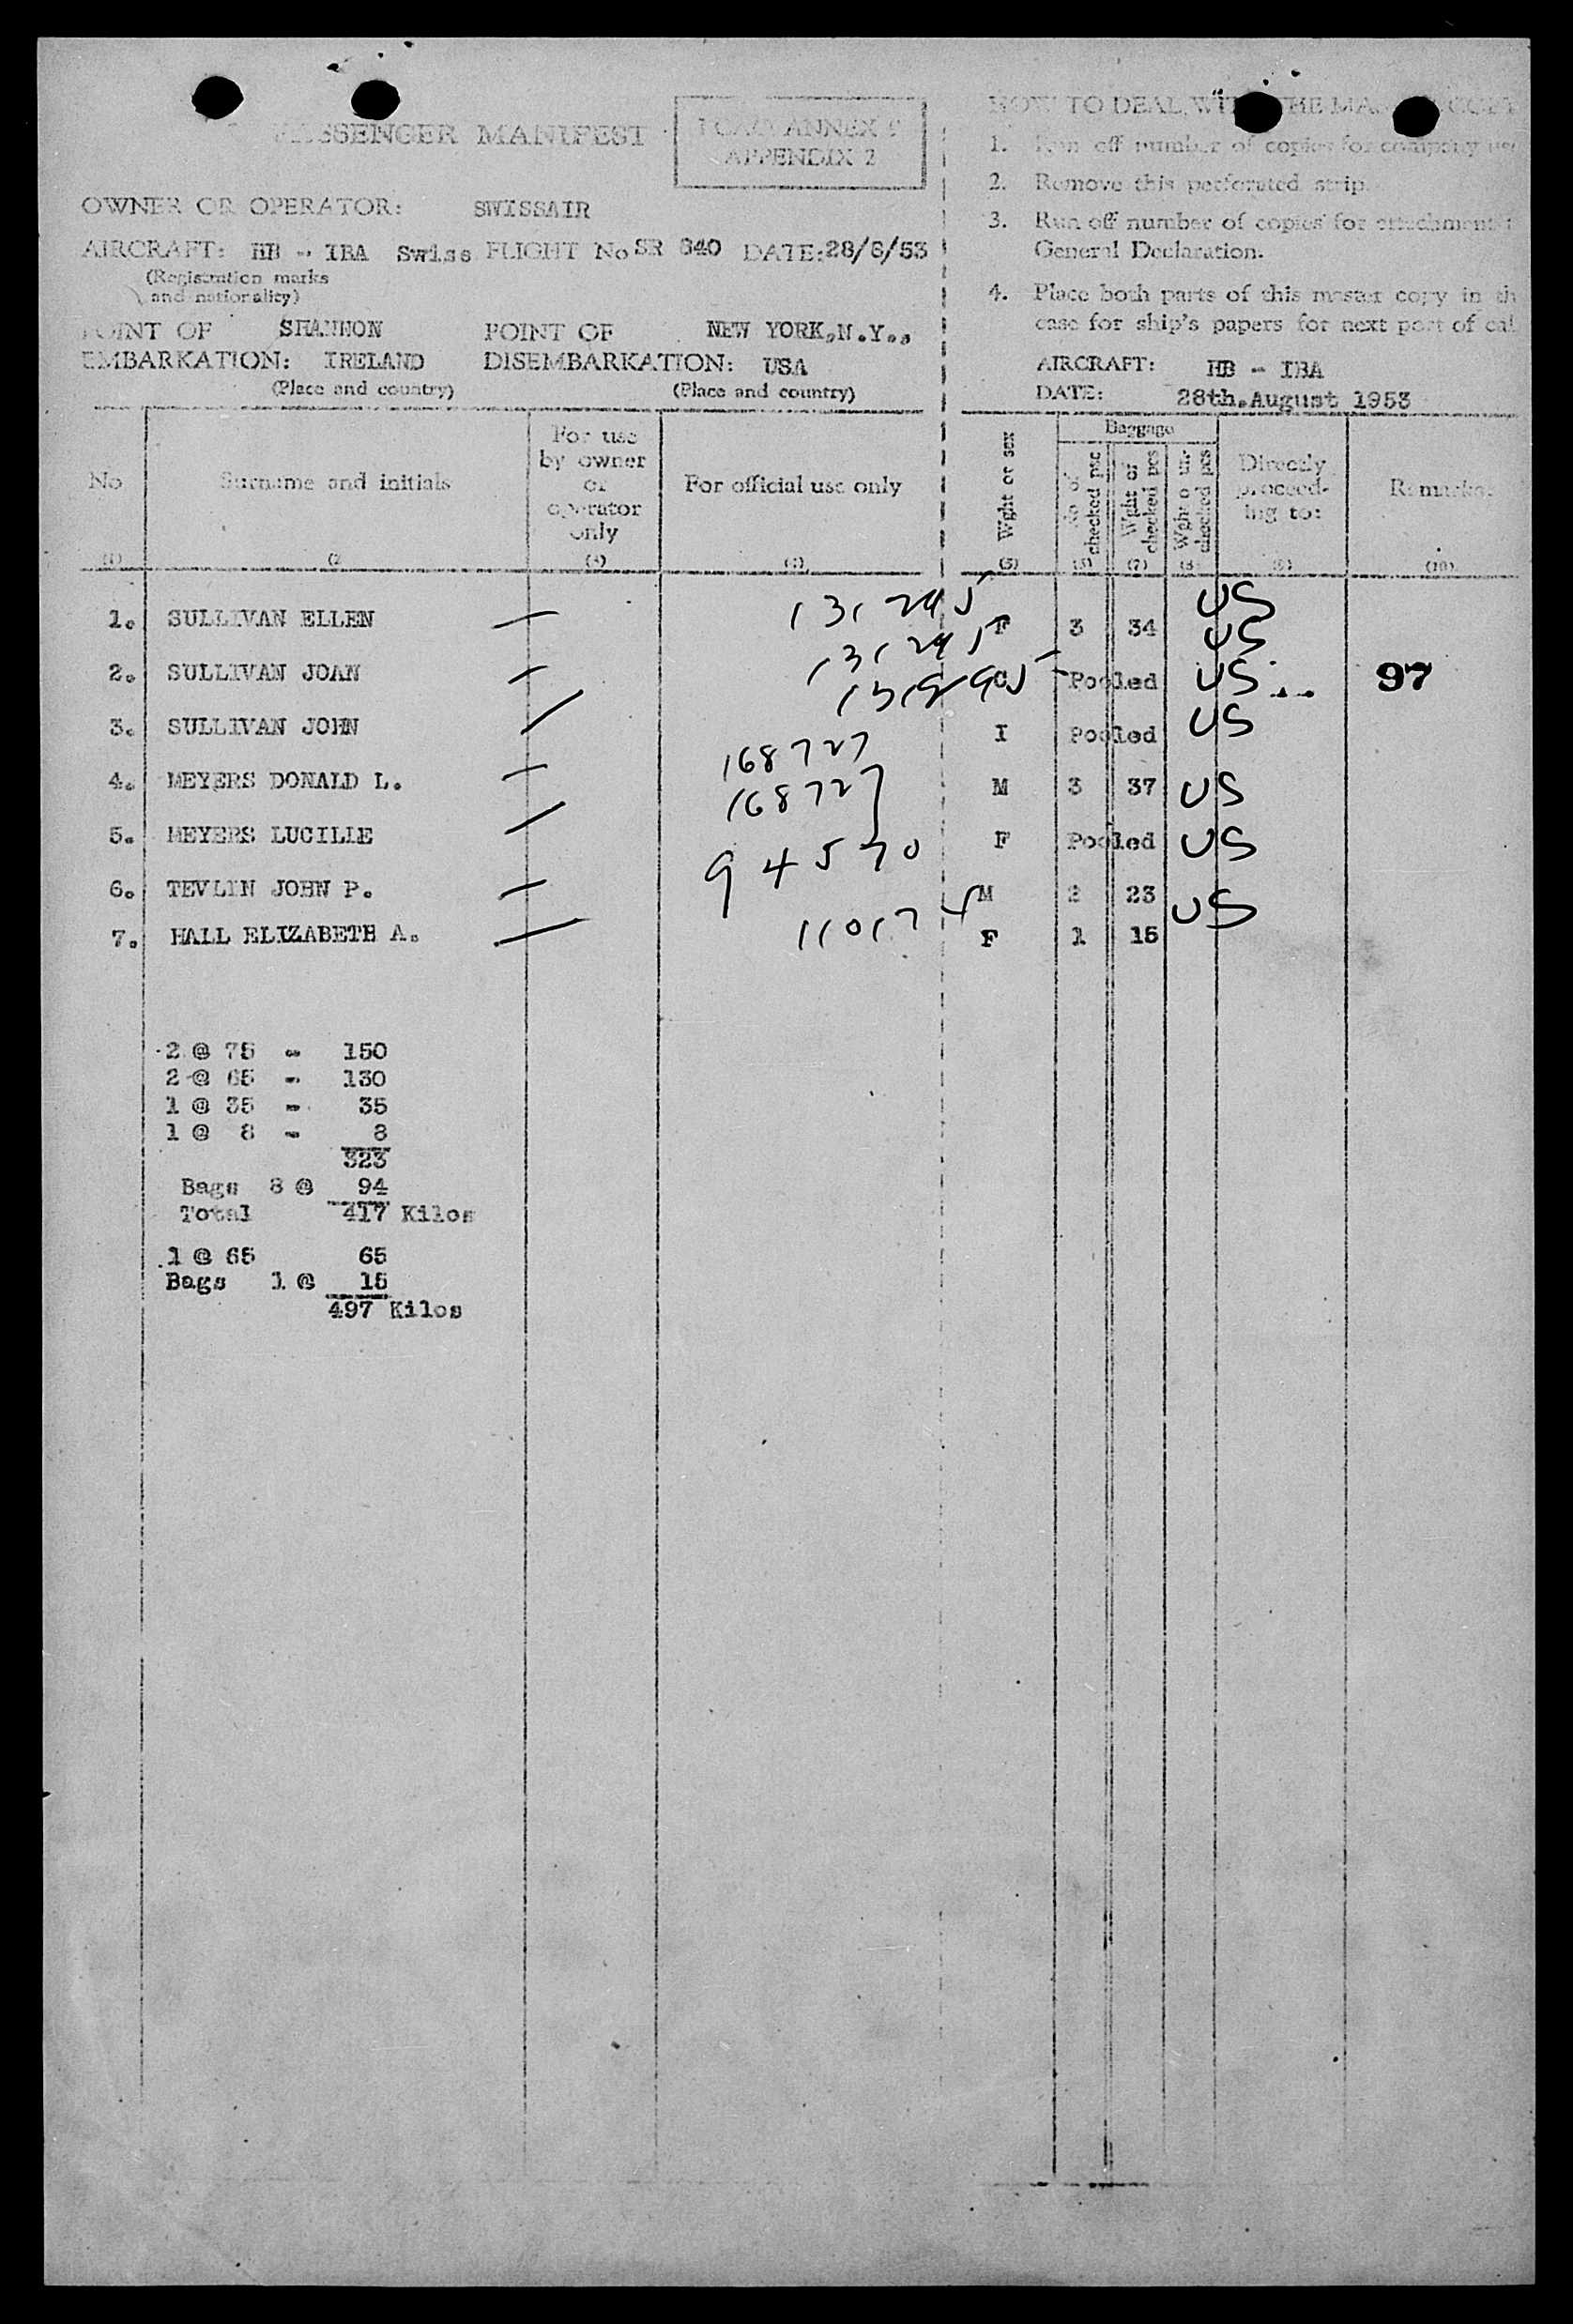 PASSENGER MANIFEST
ICAO ANNEX 9
APPENDIX 2
OWNER OR OPERATOR: SWISSAIR
AIRCRAFT: HB - IBA Swiss FLIGHT No SR 840 DATE: 28/8/53
(Registration marks
and nationality)
POINT OF SHANNON POINT OF NEW YORK, N.Y.,
EMBARKATION: IRELAND DISEMBARKATION: USA
(Place and country) (Place and country)
HOW TO DEAL WITH THE MASTER COPY
1. Run off number of copies for company use
2. Remove this perforated strip.
3. Run off number of copies for attachment t
General Declaration.
4. Place both parts of this master copy in th
case for ship's papers for next port of cal
AIRCRAFT: HB - IBA
DATE: 28th.August 1953
No
(1)
Surname and initials
(2
For use
by owner
or
operator
only
For official use only
Wght or sex
(5)
Baggage
No of
checked psc
Wght of
checked pcs
(7)
Wght o un-
checked pcs
(8
Directly
proceed-
ing to:
(9)
Remarks.
(10)
1. SULLIVAN ELLEN F 3 34 US
2. SULLIVAN JOAN C Pooled US
US 97
3. SULLIVAN JOHN I Pooled US
4. MEYERS DONALD L. 168727 M 3 37 US
5. MEYERS LUCILLE 168727 F Pooled US
6. TEVLIN JOHN P. 94570 M 2 23 US
7. HALL ELIZABETH A. F 1 15
2 @ 75 - 150
2 @ 65 - 130
1 @ 35 - 35
1 @ 8 - 8
323
Bags 8 @ 94
Total 417 Kilos
1 @ 65 65
Bags 1 @ 15
497 Kilos